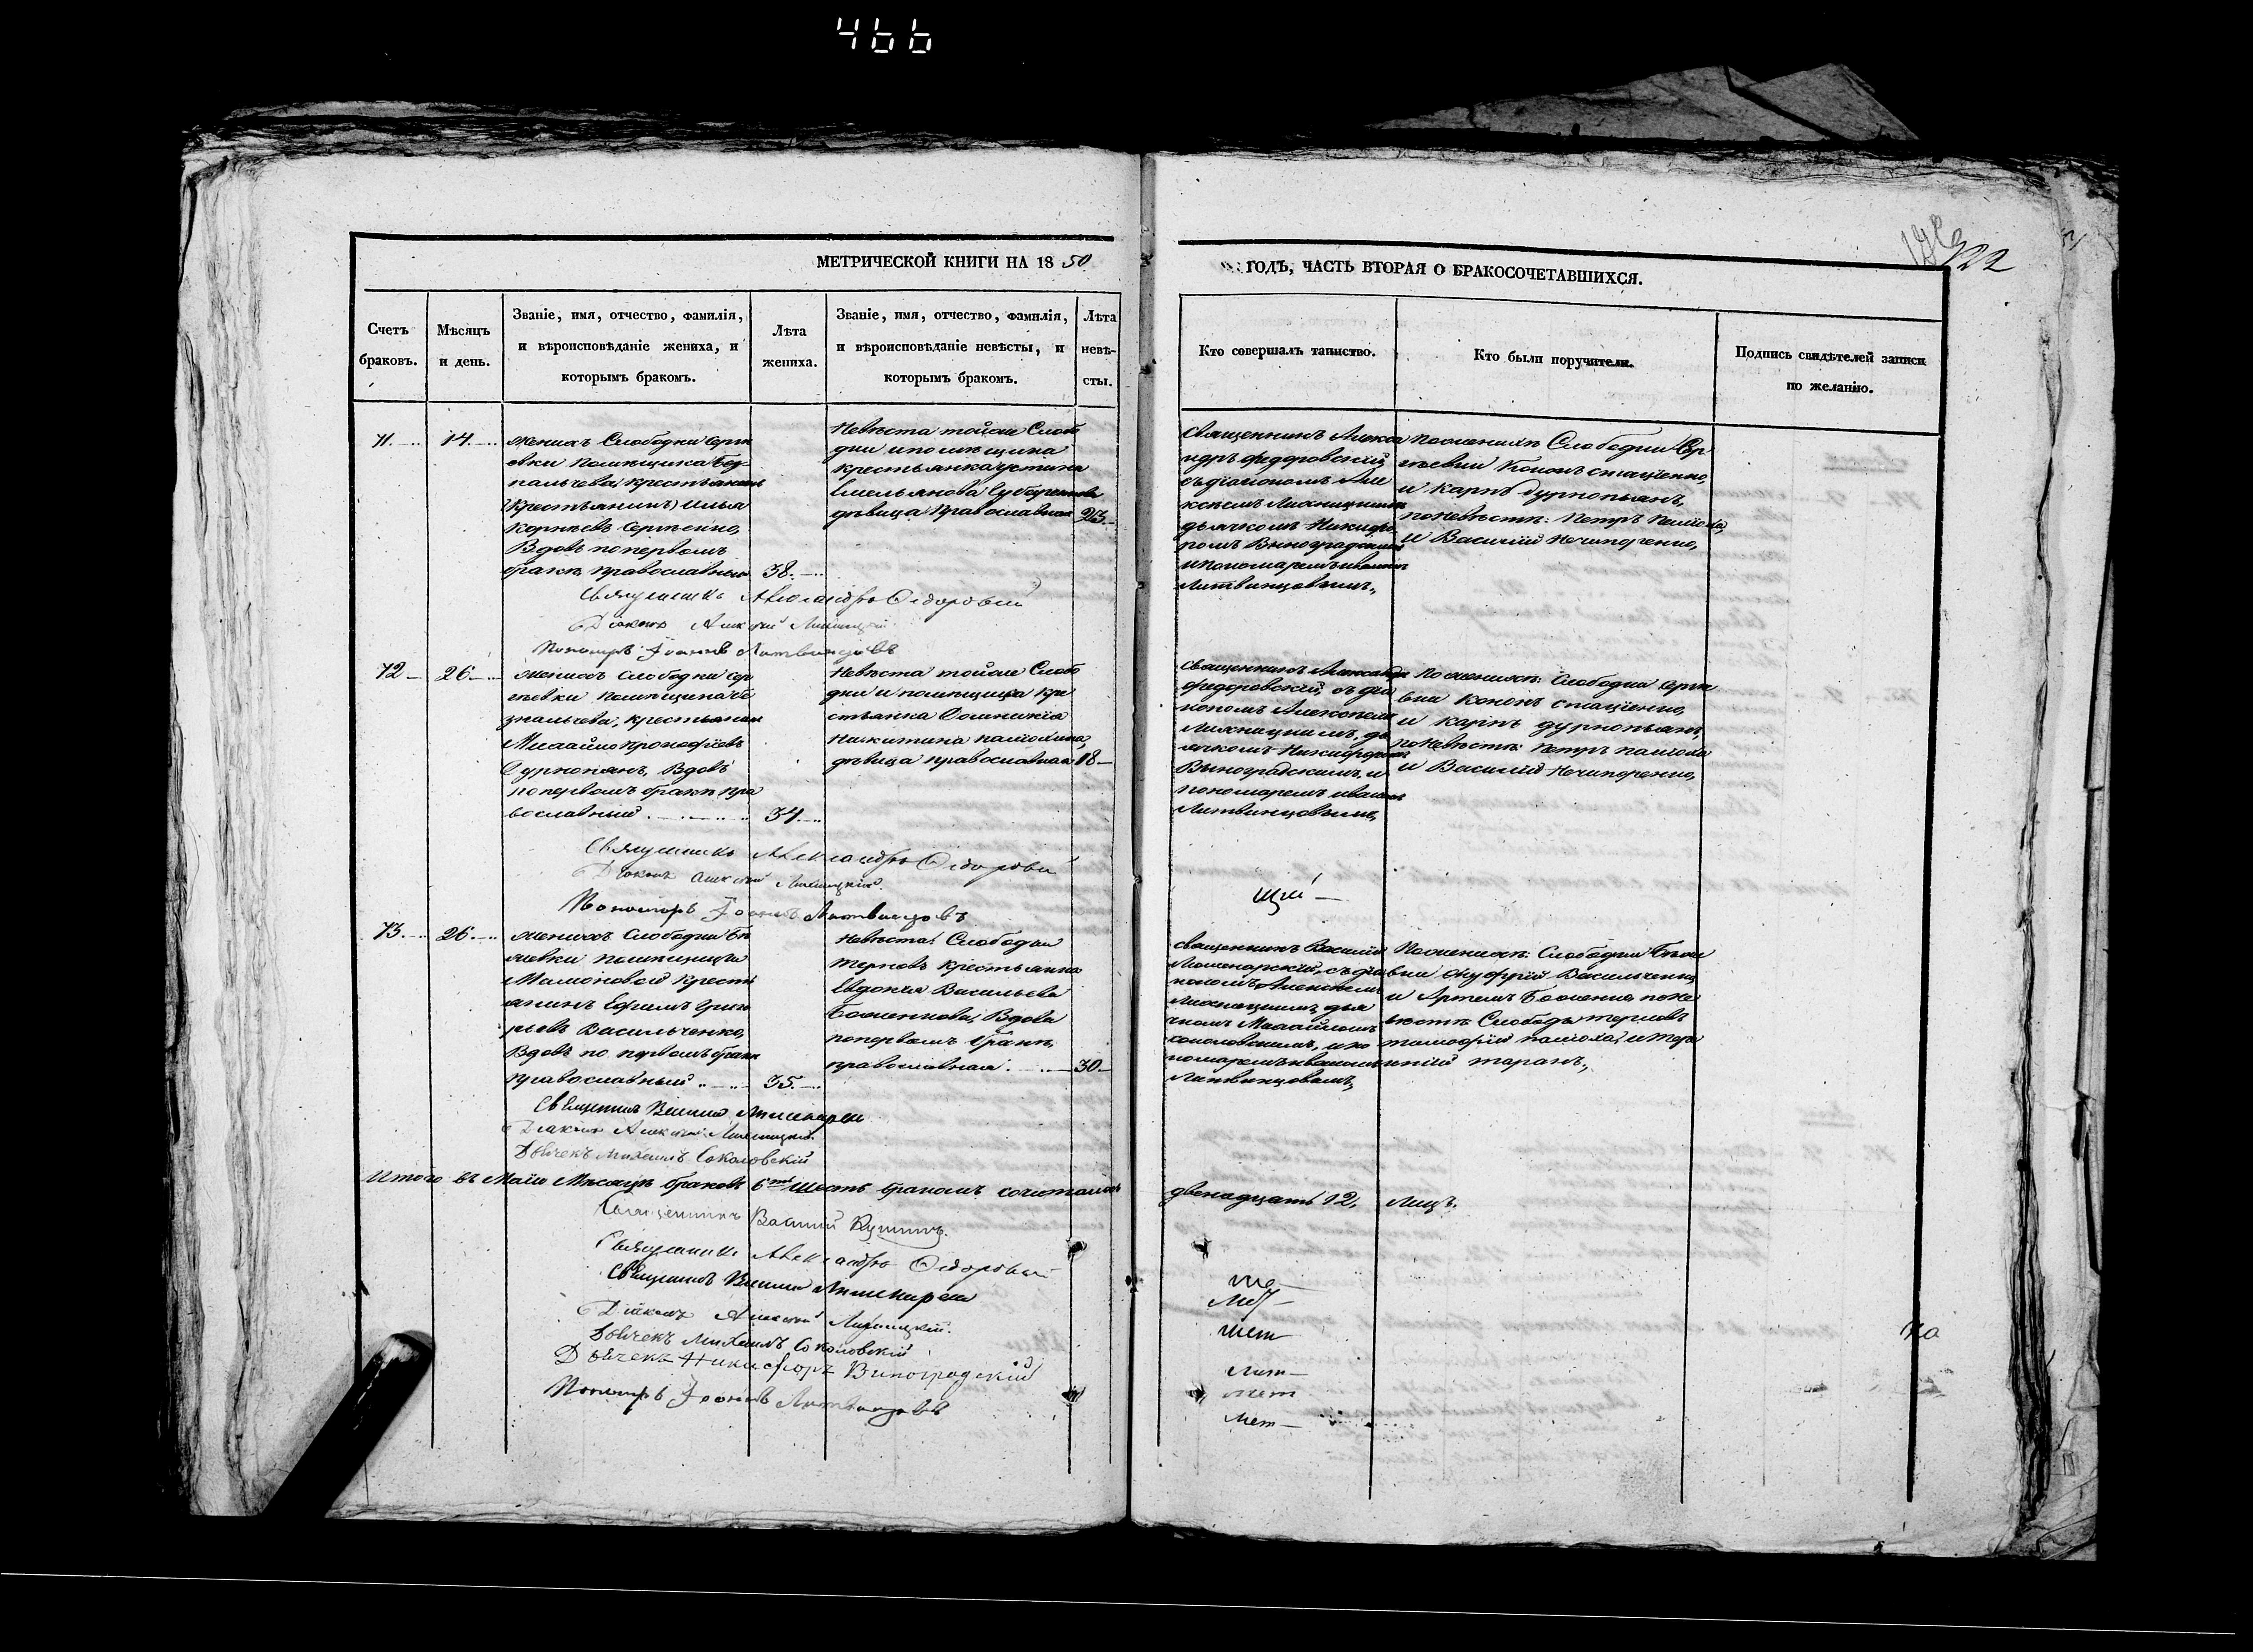 466
122
МЕТРИЧЕСКОЙ КНИГИ НА 1850
ГОДЪ, ЧАСТЬ ВТОРАЯ О БРАКОСОЧЕТАВШИХСЯ.
Счетъ браковъ.
Мѣсяцъ и день.
Званіе, имя, отчество, фамилія,
и вѣроисповѣданіе жениха, и
которымъ бракомъ.
Лѣта
жениха.
Званіе, имя, отчество, фамилія,
и вѣроисповѣданіе невѣсты, и
которымъ бракомъ.
Лѣта
невѣ-
сты.
Кто совершалъ таинство.
Кто были поручители.
Подпись свидѣтелей записи
по желанію.
71.
14.
женихъ Слободки Серге
евки помѣщика Без
пальчева крестьянинъ
(крестьянинъ) Илья
Корнѣевъ Сергѣенко,
Вдовъ по первомъ
бракѣ православный
38.
Невѣста той же Слобо
дки и помѣщика
крестьянка Устина
Емельянова
дѣвица православная
23.
Священникъ Алекса
ндръ Федоровскій
съ діакономъ Але
ксѣемъ Лихницкимъ
дьячкомъ Никифо
ромъ Виноградскимъ
и пономаремъ Иваномъ
Литвинцовымъ,
по женихѣ Слободки Сер
гѣевки Кононъ Стаценко,
и Карпъ Дурнопьянъ,
по невѣстѣ: Петръ Палоха,
и Василій Нечипоренко,
Священникъ Александръ Федоровскій
Діаконъ Алексѣй Лихницкій
Пономарь Іоаннъ Литвинцовъ
72
26
женихъ Слободки Сер
гѣевки помѣщика Бе
зпальчева, крестьянинъ
Михайло Прокофіевъ
Дурнопянъ, Вдовъ
по первомъ бракѣ пра
вославный
34.
Невѣста той же Слобо
дки и помѣщика кре
стьянка Домникія
Никитина Палохина,
дѣвица православная
18
Священникъ Александръ
Федоровскій, съ діа
кономъ Алексѣемъ
Лихницкимъ, дь
ячкомъ Никифоромъ
Виноградскимъ, и
пономаремъ Иваномъ
Литвинцовымъ,
По женихѣ: Слободки Сергѣе
вки Кононъ Стаценко,
и Карпъ Дурнопьянъ
по невѣстѣ: Петръ Палоха
и Василій Нечипоренко,
Священникъ Александръ Федоровскій
Діаконъ Алексѣй Лихницкій.
Пономарь Іоаннъ Литвинцовъ
73.
26.
женихъ Слободки Бѣ
ляевки помѣщицы
Мамоновой крестья
янинъ Ефимъ Григо
рьевъ Васильченко,
Вдовъ по первомъ бракѣ
православный
35.
Невѣста: Слободки
Терновъ крестьянка
Евдокія Васильева
Боженкова, Вдова
по первомъ бракѣ,
православная
30
Священникъ Василій
съ діа
кономъ Алексѣемъ
Лихницкимъ, дья
чкомъ Михайломъ
Соколовскимъ, и по
номаремъ Иваномъ
Литвинцовымъ,
По женихѣ: Слободки Бѣляе
вки Онуфрій Васильченко,
и Артемъ Боженко, по не
вѣстѣ Слободы Терновъ
Тимофій Палоха, и
Таранъ,
Священникъ Василій
Діаконъ Алексѣй Лихницкій.
Дьячекъ Михаилъ Соколовскій
Итого въ Маіѣ Мѣсяцѣ браковъ 6 шесть бракомъ сочетались
двенадцать 12, лицъ.
Священникъ Василій
Священникъ Александръ Федоровскій
Священникъ Василій
Діаконъ Алексѣй Лихницкій.
Дьячекъ Михаилъ Соколовскій
Дьячекъ Никифоръ Виноградскій
Пономарь Іоаннъ Литвинцовъ